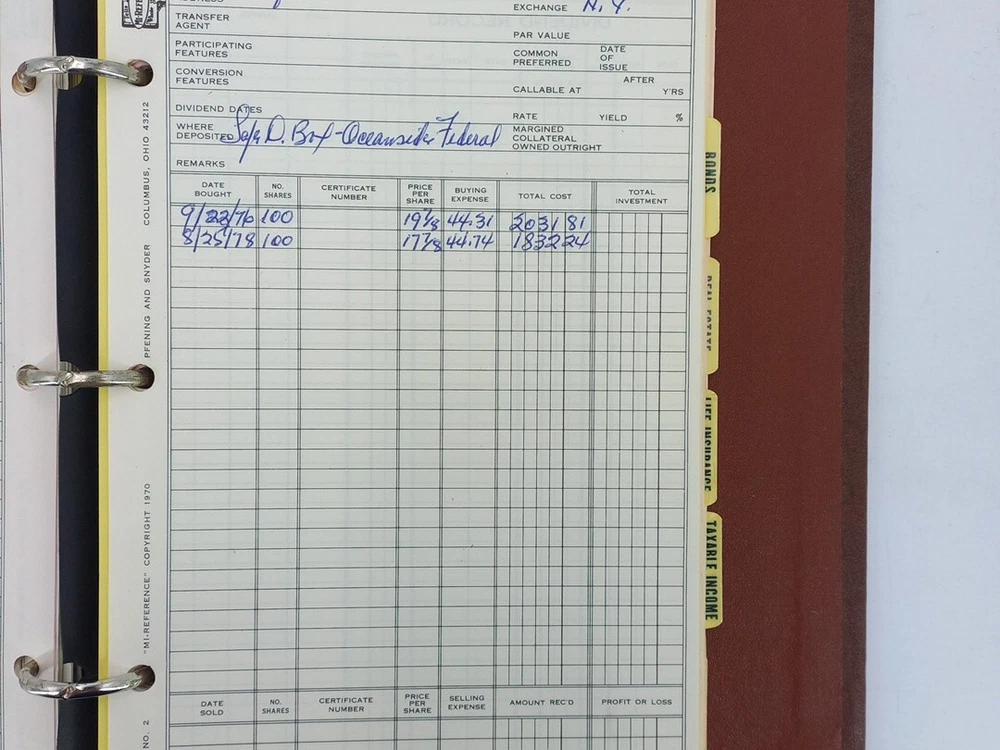 EXCHANGE N.Y.
TRANSFER AGENT
PAR VALUE
PARTICIPATING FEATURES
COMMON PREFERRED
DATE OF ISSUE
CONVERSION FEATURES
AFTER
CALLABLE AT Y'RS
DIVIDEND DATES
RATE YIELD %
WHERE DEPOSITED Safe D. Box - Oceanside Federal
MARGINED COLLATERAL OWNED OUTRIGHT
REMARKS
DATE BOUGHT NO. SHARES CERTIFICATE NUMBER PRICE PER SHARE BUYING EXPENSE TOTAL COST TOTAL INVESTMENT
9/22/76 100 19 7/8 44.31 2031 81
8/25/78 100 17 7/8 44.74 1832 24
DATE SOLD NO. SHARES CERTIFICATE NUMBER PRICE PER SHARE SELLING EXPENSE AMOUNT REC'D PROFIT OR LOSS
NO. 2 "MI-REFERENCE" COPYRIGHT 1970 PFENING AND SNYDER COLUMBUS, OHIO 43212
BONDS
REAL ESTATE
LIFE INSURANCE
TAXABLE INCOME